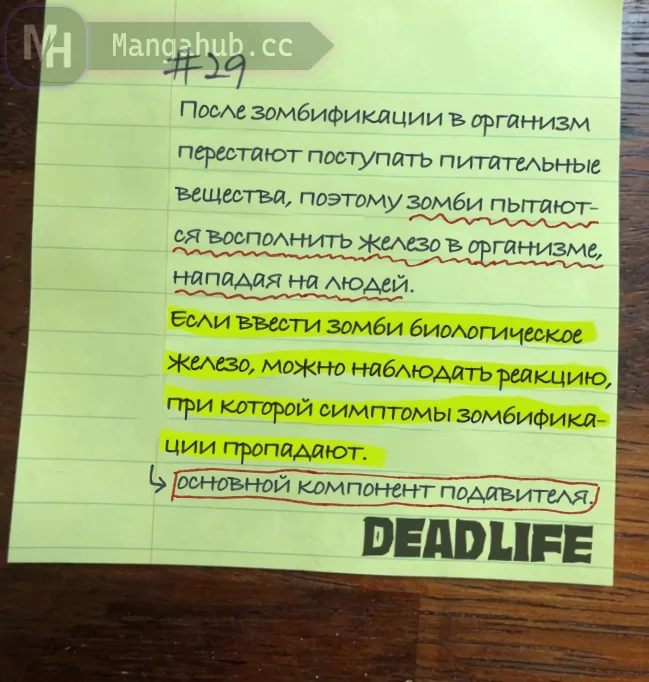 MH Mangahub.cc
#29
После зомбификации в организм
перестают поступать питательные
вещества, поэтому зомби пытают-
ся восполнить железо в организме,
нападая на людей.
Если ввести зомби биологическое
железо, можно наблюдать реакцию,
при которой симптомы зомбифика-
ции пропадают.
основной компонент подавителя.
DEADLIFE